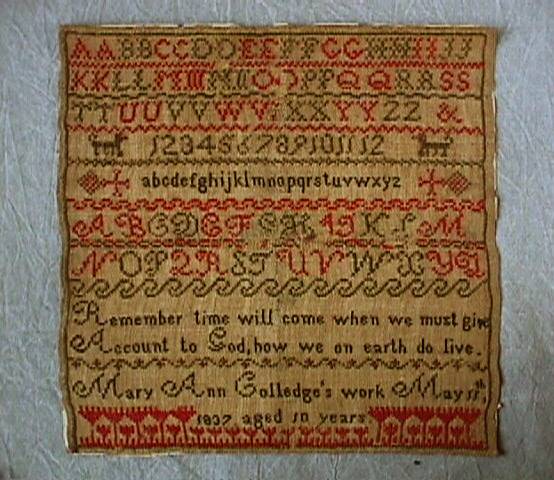 AABBCCDDEEFFGGHHIIJJ
KKLLMMNNOOPPQQRRSS
TTUUVVWWXXYYZZ &
123456789101112
abcdefghijklmnopqrstuvwxyz
ABCDEFGHIJKLM
NOPQRSTUVWXYZ
Remember time will come when we must give
Account to God, how we on earth do live.
Mary Ann Golledge's work May 11th,
1837 aged 10 years